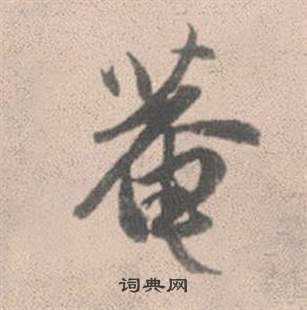 菴
词典网